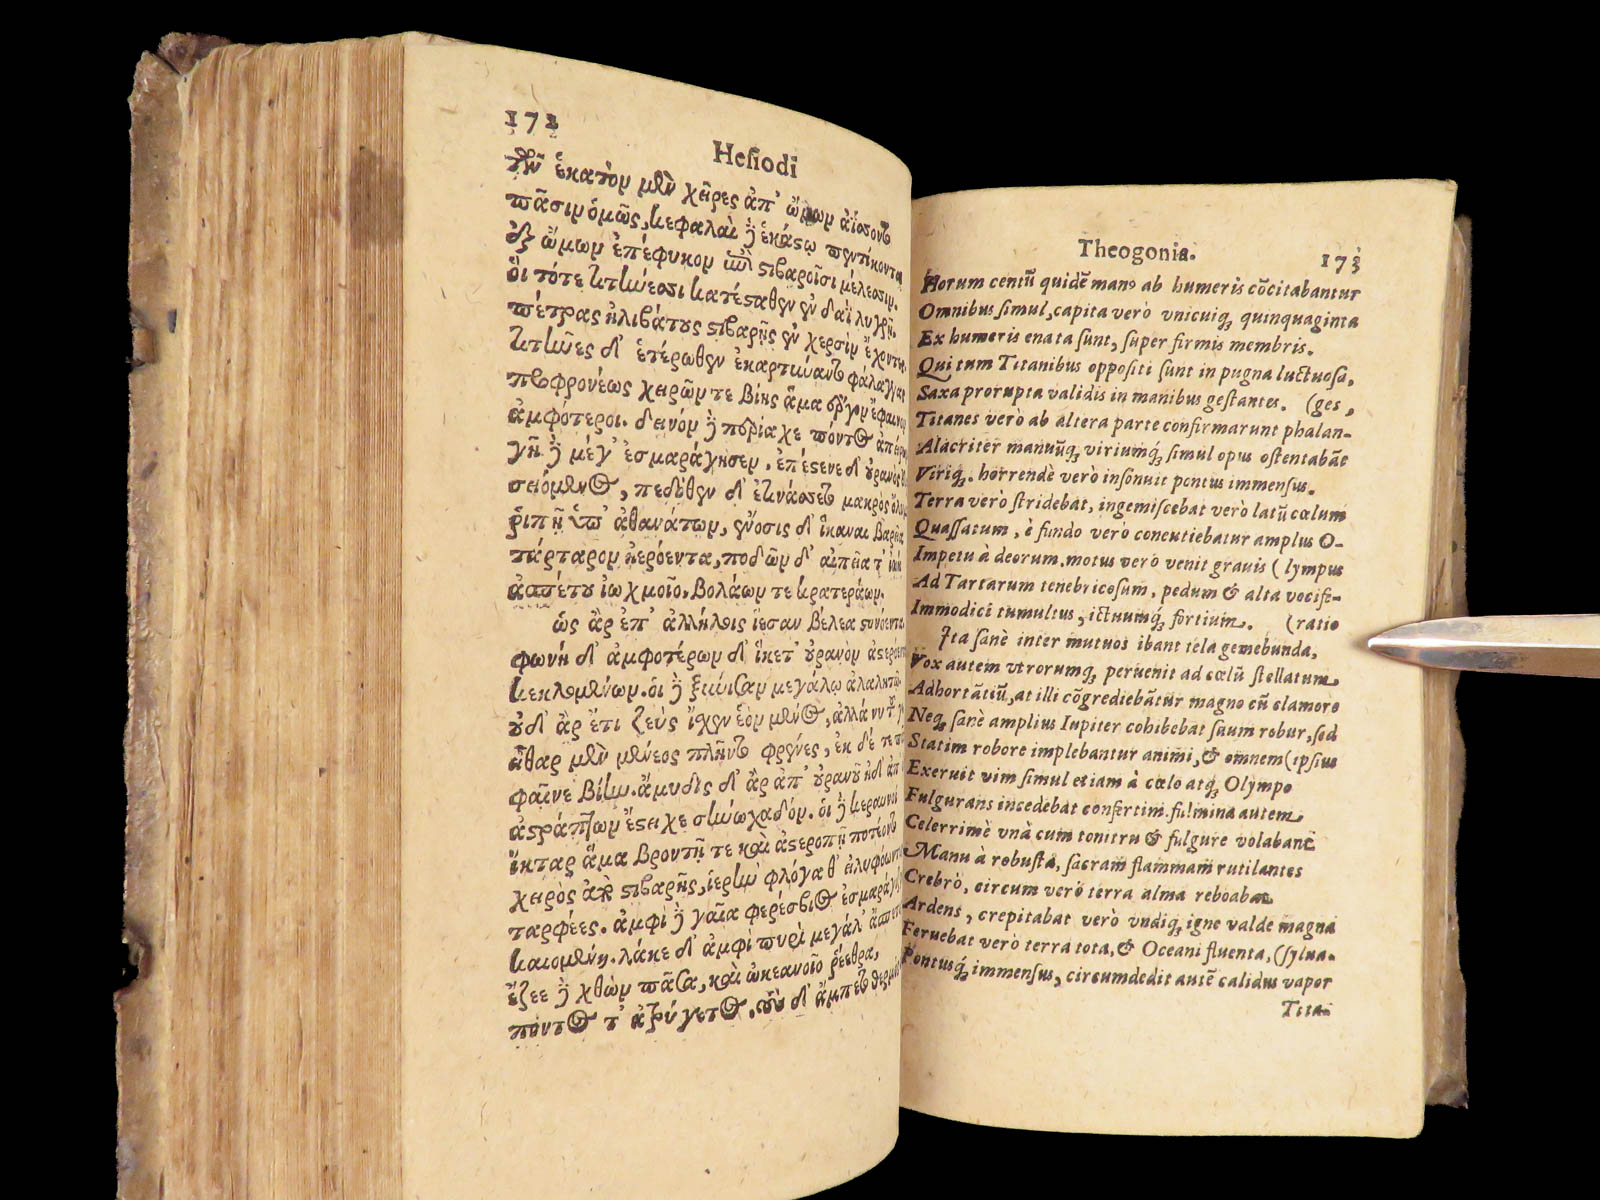 172
Hesiodi
τῶν ἑκατὸν μὲν χεῖρες ἀπ' ὤμων ἀΐσσοντο
πᾶσιν ὁμῶς, κεφαλαὶ ἢ ἑκάστῳ πεντήκοντα
ἐξ ὤμων ἐπέφυκον ἐπὶ στιβαροῖσι μέλεσσιν.
οἳ τότε τιτήνεσσι κατέσταθεν ἐν δαῒ λυγρῇ.
πέτρας ἠλιβάτους στιβαρῇς ἐν χερσὶν ἔχοντες.
τιτῆνες δ' ἑτέρωθεν ἐκαρτύναντο φάλαγγας
προφρονέως χειρῶν τε βίης ἅμα ἔργον ἔφαινον
ἀμφότεροι. δεινὸν ἢ περίαχε πόντος ἀπείρων
γῆ ἢ μέγ' ἐσμαράγησεν, ἐπέστενε δ' οὐρανὸς
σειόμενος, πεδόθεν δ' ἐτινάσσετο μακρὸς
ῥιπῇ ὑπ' ἀθανάτων, ἔνοσις δ' ἵκανε βαρεῖα
τάρταρον ἠερόεντα, ποδῶν δ' αἰπεῖά τ' ἰωὴ
ἀσπέτου ἰωχμοῖο. βολάων τε κρατεράων.
ὣς ἄρ ἐπ' ἀλλήλοις ἵεσαν βέλεα στονόεντα
φωνὴ δ' ἀμφοτέρων δ' ἵκετ' οὐρανὸν ἀστερόεντα
κεκλομένων. οἱ ἢ ξύνισαν μεγάλῳ ἀλαλητῷ.
οὐδ' ἄρ ἔτι ζεὺς ἴσχεν ἑὸν μένος, ἀλλά νυ τοῦ γε
εἶθαρ μὲν μένεος πλῆντο φρένες, ἐκ δέ τε πᾶσαν
φαῖνε βίην. ἄμυδις δ' ἄρ ἀπ' οὐρανοῦ ἠδ' ἀπ'
ἀστράπτων ἔστειχε συνωχαδόν. οἱ ἢ κεραυνοὶ
ἴκταρ ἅμα βροντῇ τε καὶ ἀστεροπῇ ποτέοντο
χειρὸς ἄπο στιβαρῆς, ἱερὴν φλόγα θ' εἰλυφόωντες
ταρφέες. ἀμφὶ ἢ γαῖα φερέσβιος ἐσμαράγιζε
καιομένη. λάκε δ' ἀμφὶ πυρὶ μεγάλ' ἄσπετος
ἔζεε ἢ χθὼν πᾶσα, καὶ ὠκεανοῖο ῥέεθρα,
πόντος τ' ἀτρύγετος, τοὺς δ' ἄμπεπε θερμὸς
Theogonia.
173
Horum centū quidē manꝰ ab humeris cōcitabantur
Omnibus simul, capita verò vnicuiq; quinquaginta
Ex humeris enata sunt, super firmis membris.
Qui tum Titanibus oppositi sunt in pugna luctuosa,
Saxa prorupta validis in manibus gestantes. (ges,
Titanes verò ab altera parte confirmarunt phalan-
Alacriter manuūq; viriumq́; simul opus ostentabāt
Viriq;. horrendè verò insonuit pontus immensus.
Terra verò stridebat, ingemiscebat verò latū cœlum
Quassatum, è fundo verò concutiebatur amplus O-
Impetu à deorum. motus verò venit grauis ( lympus
Ad Tartarum tenebricosum, pedum & alta vocife-
Immodici tumultus, ictuumq́; fortium. (ratio
Ita sanè inter mutuos ibant tela gemebunda,
Vox autem vtrorumq; peruenit ad cœlū stellatum
Adhortātiū, at illi cōgrediebātur magno cū clamore
Neq; sanè amplius Iupiter cohibebat suum robur, sed
Statim robore implebantur animi, & omnem (ipsius
Exeruit vim simul etiam à cœlo atq; Olympo
Fulgurans incedebat confertim. fulmina autem
Celerrimè vnà cum tonitru & fulgure volabant
Manu à robusta, sacram flammam rutilantes
Crebrò, circum verò terra alma reboabat
Ardens, crepitabat verò vndiq; igne valde magna
Feruebat verò terra tota, & Oceani fluenta, (sylua.
Pontusq́; immensus, circumdedit autē calidus vapor
Tita-